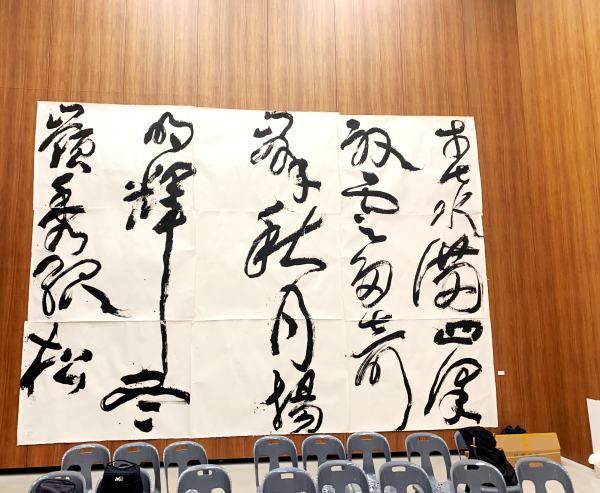 春水滿四澤
夏雲多奇
峯秋月揚
明輝冬
嶺秀孤松